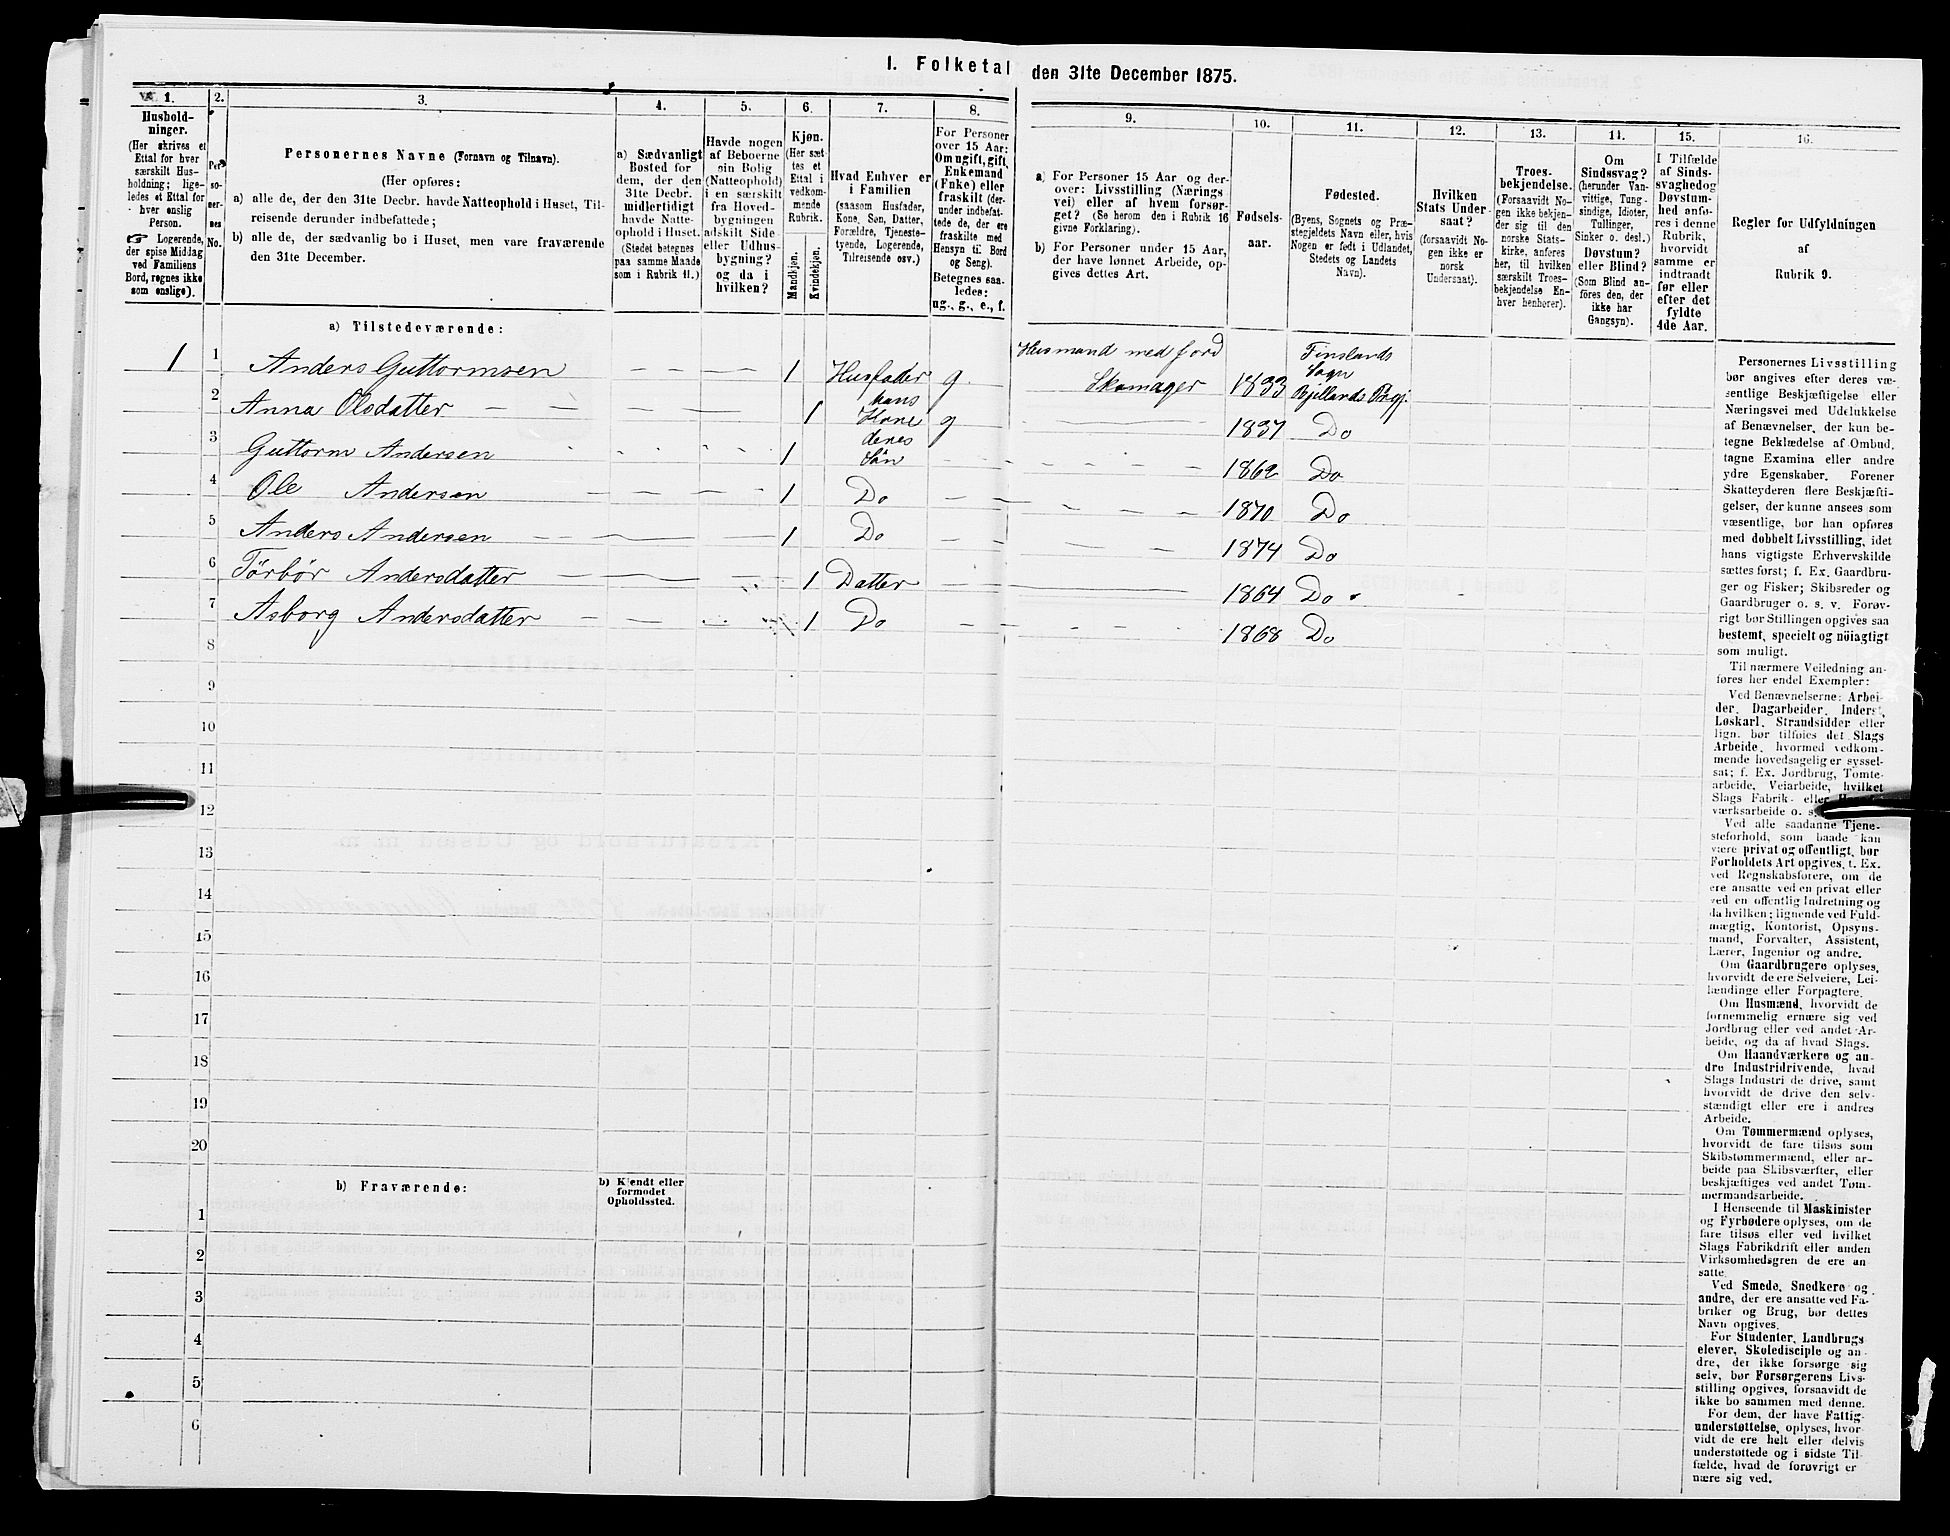 I. Folketal den 31te December 1875.
1. 2. 3. 4. 5. 6. 7. 8. 9. 10. 11. 12. 13. 14. 15. 16.
Husholdninger.
(Her skrives et
Ettal for hver
særskilt Hus-
holdning; lige-
ledes et Ettal for
hver enslig
Person.
☞ Logerende,
der spise Middag
ved Familiens
Bord, regnes ikke
som enslige).
Personernes No.
Personernes Navne (Fornavn og Tilnavn).
(Her opføres:
a) alle de, der den 31te Decbr. havde Natteophold i Huset, Til-
reisende derunder indbefattede;
b) alle de, der sædvanlig bo i Huset, men vare fraværende
den 31te December.
a) Sædvanligt
Bosted for
dem, der den
31te Decbr.
midlertidigt
havde Natte-
ophold i Huset.
(Stedet betegnes
paa samme Maade
som i Rubrik 11.)
Havde nogen
af Beboerne
sin Bolig
(Natteophold)
i en særskilt
fra Hoved-
bygningen
adskilt Side-
eller Udhus-
bygning?
og da i
hvilken?
Kjøn.
(Her sæt-
tes et
Ettal i
vedkom-
mende
Rubrik.
Mandkjøn.
Kvindekjøn.
Hvad Enhver er
i Familien
(saasom Husfader,
Kone, Søn, Datter,
Forældre, Tjeneste-
tyende, Logerende,
Tilreisende osv.)
For Personer
over 15 Aar:
Om ugift, gift,
Enkemand
(Enke) eller
fraskilt (der-
under indbefat-
tede de, der ere
fraskilte med
Hensyn til Bord
og Seng).
Betegnes saa-
ledes:
ug., g., e., f.
a) For Personer 15 Aar og der-
over: Livsstilling (Nærings-
vei) eller af hvem forsør-
get? (Se herom den i Rubrik 16
givne Forklaring).
b) For Personer under 15 Aar,
der have lønnet Arbeide, op-
gives dettes Art.
Fødsels-
aar.
Fødested.
(Byens, Sognets og Præ-
stegjeldets Navn eller, hvis
Nogen er født i Udlandet,
Stedets og Landets
Navn).
Hvilken
Stats Under-
saat?
(forsaavidt No-
gen ikke er
norsk
Undersaat).
Troes-
bekjendelse.
(Forsaavidt No-
gen ikke bekjen-
der sig til den
norske Stats-
kirke, anføres
her, til hvilken
særskilt Troes-
bekjendelse En-
hver henhører).
Om
Sindssvag?
(herunder Van-
vittige, Tung-
sindige, Idioter,
Tullinger,
Sinker o. desl.)
Døvstum?
eller Blind?
(Som Blind an-
føres den, der
ikke har
Gangsyn).
I Tilfælde
af Sinds-
svaghed og
Døvstum-
hed anfø-
res i denne
Rubrik,
hvorvidt
samme er
indtraadt
før eller
efter det
fyldte
4de Aar.
Regler for Udfyldningen
af
Rubrik 9.
a) Tilstedeværende:
1 1 Anders Guttormsen 1 Husfader g. Husmand med jord Skomager 1833 Finslands Sogn Bjellands Prgj.
2 Anna Olsdatter 1 hans Kone g 1837 Do
3 Guttorm Andersen 1 deres Søn 1862 Do
4 Ole Andersen 1 Do 1870 Do
5 Anders Andersen 1 Do 1874 Do
6 Törbör Andersdatter 1 Datter 1864 Do
7 Asborg Andersdatter 1 Do 1868 Do
8
9
10
11
12
13
14
15
16
17
18
19
20
b) Fraværende:
b) Kjendt eller
formodet
Opholdssted.
1
2
3
4
5
6
Personernes Livsstilling
bør angives efter deres væ-
sentlige Beskjæftigelse eller
Næringsvei med Udelukkelse
af Benævnelser, der kun be-
tegne Beklædelse af Ombud,
tagne Examina eller andre
ydre Egenskaber. Forener
Skatteyderen flere Beskjæfti-
gelser, der kunne ansees som
væsentlige, bør han opføres
med dobbelt Livsstilling, idet
hans vigtigste Erhvervskilde
sættes først; f. Ex. Gaardbru-
ger og Fisker; Skibsreder og
Gaardbruger o. s. v. Forøv-
rigt bør Stillingen opgives saa
bestemt, specielt og nöiagtigt
som muligt.
Til nærmere Veiledning an-
føres her endel Exempler:
Ved Benævnelserne: Arbei-
der, Dagarbeider, Inderst,
Løskarl, Strandsidder eller
lign. bør tilføies det Slags
Arbeide, hvormed vedkom-
mende hovedsagelig er syssel-
sat; f. Ex. Jordbrug, Tømte-
arbeide, Veiarbeide, hvilket
Slags Fabrik- eller
værksarbeide o. s.
Ved alle saadanne Tjene-
steforhold, som baade kan
være privat og offentligt, bør
Forholdets Art opgives, t. Ex.
ved Regnskabsførere, om de
ere ansatte ved en privat eller
ved en offentlig Indretning og
da hvilken; lignende ved Fuld-
mægtig, Kontorist, Opsyns-
mand, Forvalter, Assistent,
Lærer, Ingeniør og andre.
Om Gaardbrugere oplyses,
hvorvidt de ere Selveiere, Lei-
lændinge eller Forpagtere.
Om Husmænd, hvorvidt de
fornemmelig ernære sig ved
Jordbrug eller ved andet Ar-
beide, og da af hvad Slags.
Om Haandværkere og an-
dre Industridrivende, hvad
Slags Industri de drive, samt
hvorvidt de drive den selv-
stændigt eller ere i andres
Arbeide.
Om Tømmermænd oplyses,
hvorvidt de fare tilsøs som
Skibstømmermænd, eller ar-
beide paa Skibsværfter, eller
beskjæftiges ved andet Tøm-
mermandsarbeide.
I Henseende til Maskinister
og Fyrbødere oplyses, om de
fare tilsøs eller ved hvilket
Slags Fabrikdrift eller anden
Virksomhedsgren de ere an-
satte.
Ved Smede, Snedkere og
andre, der ere ansatte ved Fa-
briker og Brug, bør dettes
Navn opgives.
For Studenter, Landbrugs-
elever, Skoledisciple og an-
dre, der ikke forsørge sig
selv, bør Forsørgerens Livs-
stilling opgives, forsaavidt de
ikke bo sammen med denne.
For dem, der have Fattig-
understøttelse, oplyses, hvor-
vidt de ere helt eller delvis
understøttede og i sidste Til-
fælde, hvad de forøvrigt er-
nære sig ved.